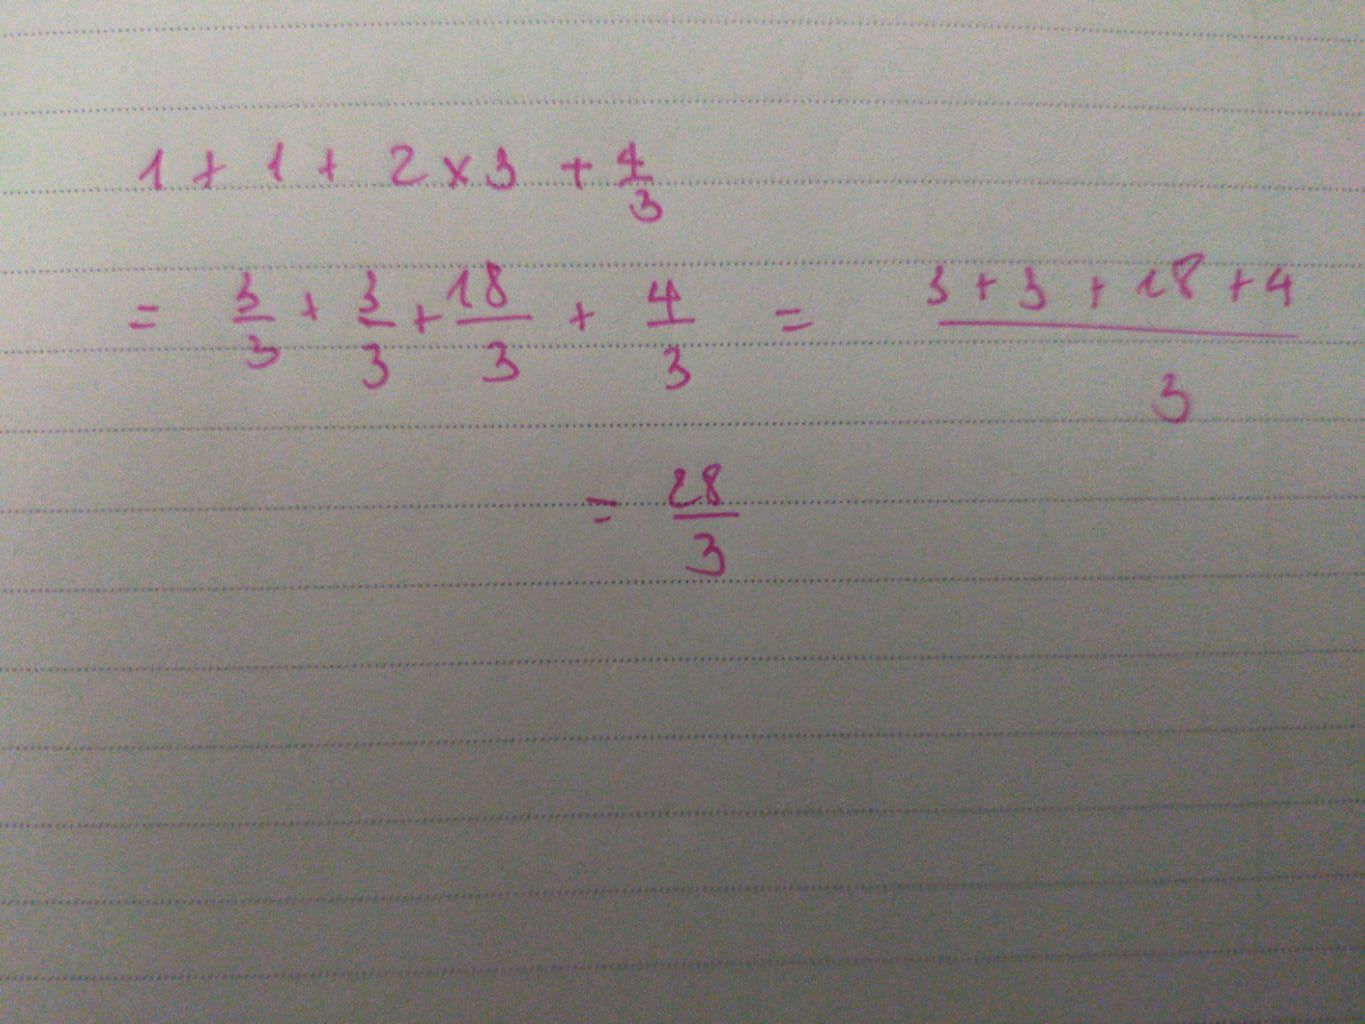 1 + 1 + 2 × 3 + 4/3
= 3/3 + 3/3 + 18/3 + 4/3 = (3 + 3 + 18 + 4)/3
= 28/3